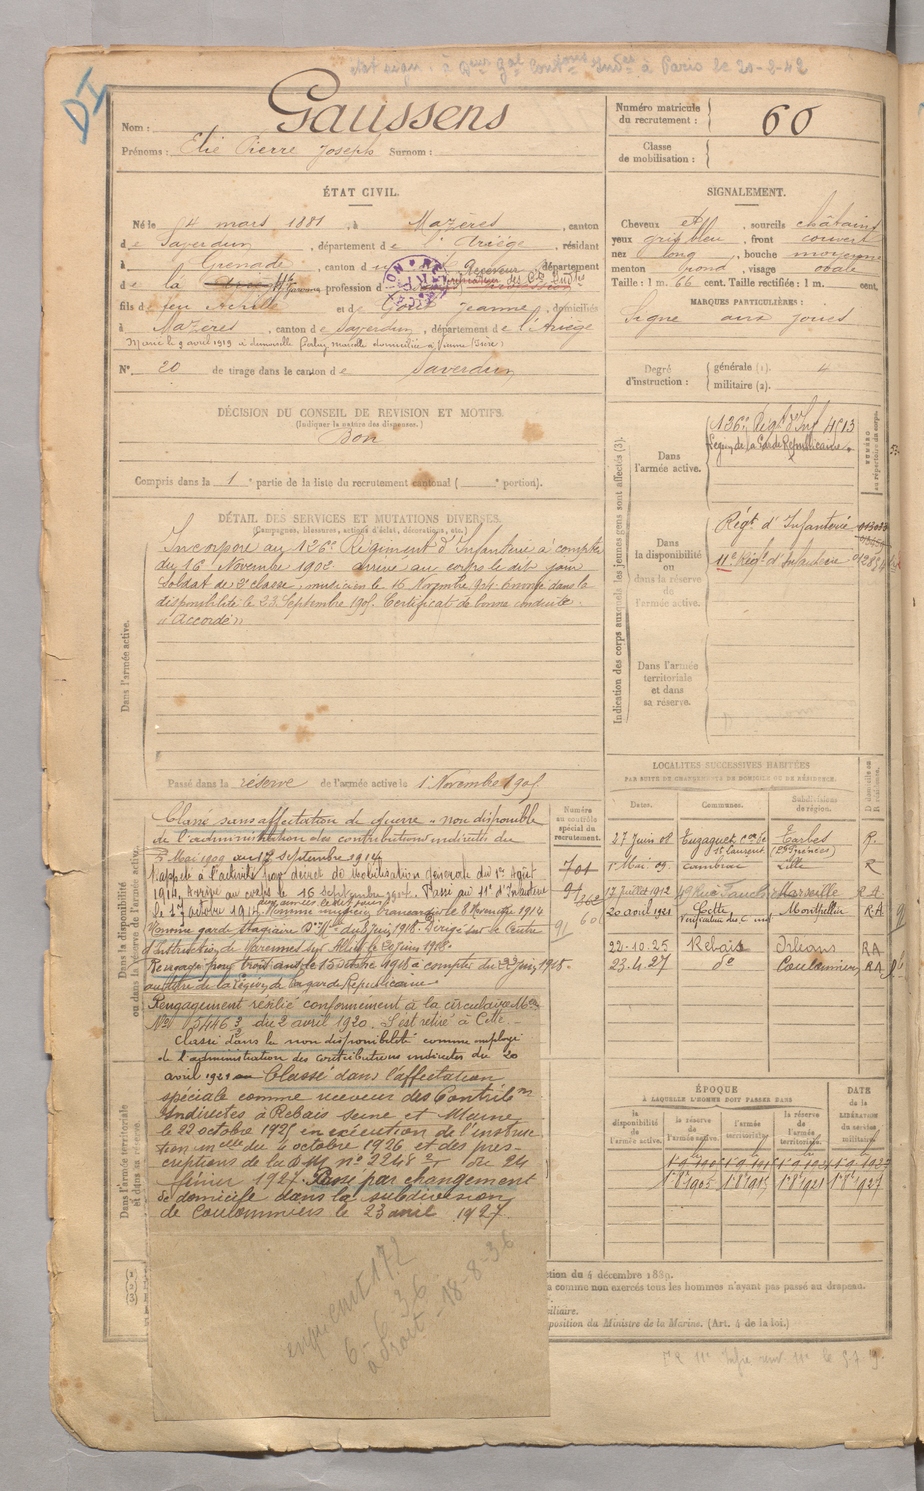 DI
à Paris le 20-8-42
Nom : Gaussens
Prénoms : Elie Pierre Joseph Surnom :
Numéro matricule du recrutement : 60
Classe de mobilisation :
ÉTAT CIVIL.
Né le 4 mars 1881, à Mazères, canton
de Saverdun, département de l'Ariège, résidant
à Grenade, canton d, département
de la Hte Garonne, profession d Receveur des Cons Indtes
fils de feu et de Jeanne, domiciliés
à Mazères, canton de Saverdun, département de l'Ariège
Marié le 9 avril 1919 à demoiselle
N° 20 de tirage dans le canton de Saverdun
SIGNALEMENT.
Cheveux et, sourcils châtains
yeux gris bleu, front couvert
nez long, bouche moyenne
menton rond, visage ovale
Taille : 1 m. 66 cent. Taille rectifiée : 1 m. cent.
MARQUES PARTICULIÈRES :
Signe aux joues
Degré d'instruction : générale (1). 4
militaire (2).
DÉCISION DU CONSEIL DE REVISION ET MOTIFS.
(Indiquer la nature des dispenses.)
Bon
Compris dans la 1e partie de la liste du recrutement cantonal ( e portion).
DÉTAIL DES SERVICES ET MUTATIONS DIVERSES.
(Campagnes, blessures, actions d'éclat, décorations, etc.)
Dans l'armée active.
Incorporé au 126e Régiment d'Infanterie à compter
du 16 Novembre 1902 arrivé au corps le dit jour
Soldat de 2e classe, musicien le 15 Novembre 904. Envoyé dans la
disponibilité le 23 Septembre 1905. Certificat de bonne conduite
"Accordé"
Passé dans la réserve de l'armée active le 1 Novembre 1905
Indication des corps auxquels les jeunes gens sont affectés (3).
NUMÉRO au répertoire du corps.
Dans l'armée active.
Légion de la Garde Républicaine
Dans la disponibilité ou dans la réserve de l'armée active.
Régt d'Infanterie
11e Régt d'Infanterie
Dans l'armée territoriale et dans sa réserve.
LOCALITÉS SUCCESSIVES HABITÉES
PAR SUITE DE CHANGEMENTS DE DOMICILE OU DE RÉSIDENCE.
Dates. Communes. Subdivisions de région. D domicile ou R résidence.
27 Juin 08 St Laurent Tarbes R.
1er Mai 09 Cambrai Lille R
17 Juillet 1912 Marseille R.A.
20 avril 1921 Cette Montpellier R.A
22-10-25 Rebais Orléans RA
23.4.27 do Coulommiers RA
Dans la disponibilité ou dans la réserve de l'armée active.
Numéro au contrôle spécial du recrutement.
701
Classé sans affectation de guerre "non disponible
de l'administration des contributions indirectes du
5 Mai 1909 au 17 Septembre 1914
Rappelé à l'activité par décret de mobilisation générale du 1er Août
1914. Arrivé au corps le 16 septembre 1914. Passé au 11e d'Infanterie
le 17 octobre 1914. Nommé musicien brancardier le 8 Novembre 1914
Nommé garde stagiaire du 8 Juin 1918. Dirigé sur le Centre
d'Instruction de Varennes sur Allier le 20 Juin 1918.
Rengagé pour trois ans le 15 octobre 1918 à compter du 22 Juin 1918.
au titre de la Légion de la garde Républicaine
Rengagement résilié conformément à la circulaire Mlle
No 15446 du 2 avril 1920. S'est retiré à Cette.
Classé dans la non disponibilité comme employé
de l'administration des contributions indirectes du 20
avril 1921 Classé dans l'affectation
spéciale comme receveur des Contributns
Indirectes à Rebais Seine et Marne
le 22 octobre 1925 en exécution de l'instruc-
tion mlle du 4 octobre 1926 et des pres-
criptions de la D. M. no 2248 du 24
février 1927. Passé par changement
de domicile dans la subdivision
de Coulommiers le 23 avril 1927.
172
6-6-36
à Droit - 18-8-36
Dans l'armée territoriale et dans sa réserve.
ÉPOQUE
À LAQUELLE L'HOMME DOIT PASSER DANS
la disponibilité de l'armée active. la réserve de l'armée active. l'armée territoriale. la réserve de l'armée territoriale.
DATE de la LIBÉRATION du service militaire.
1er 8e 1905 1er 8e 1915 1er 8e 1921 1er 8e 1927
ction du 4 décembre 1889.
a comme non exercés tous les hommes n'ayant pas passé au drapeau.
iliaire.
position du Ministre de la Marine. (Art. 4 de la loi.)